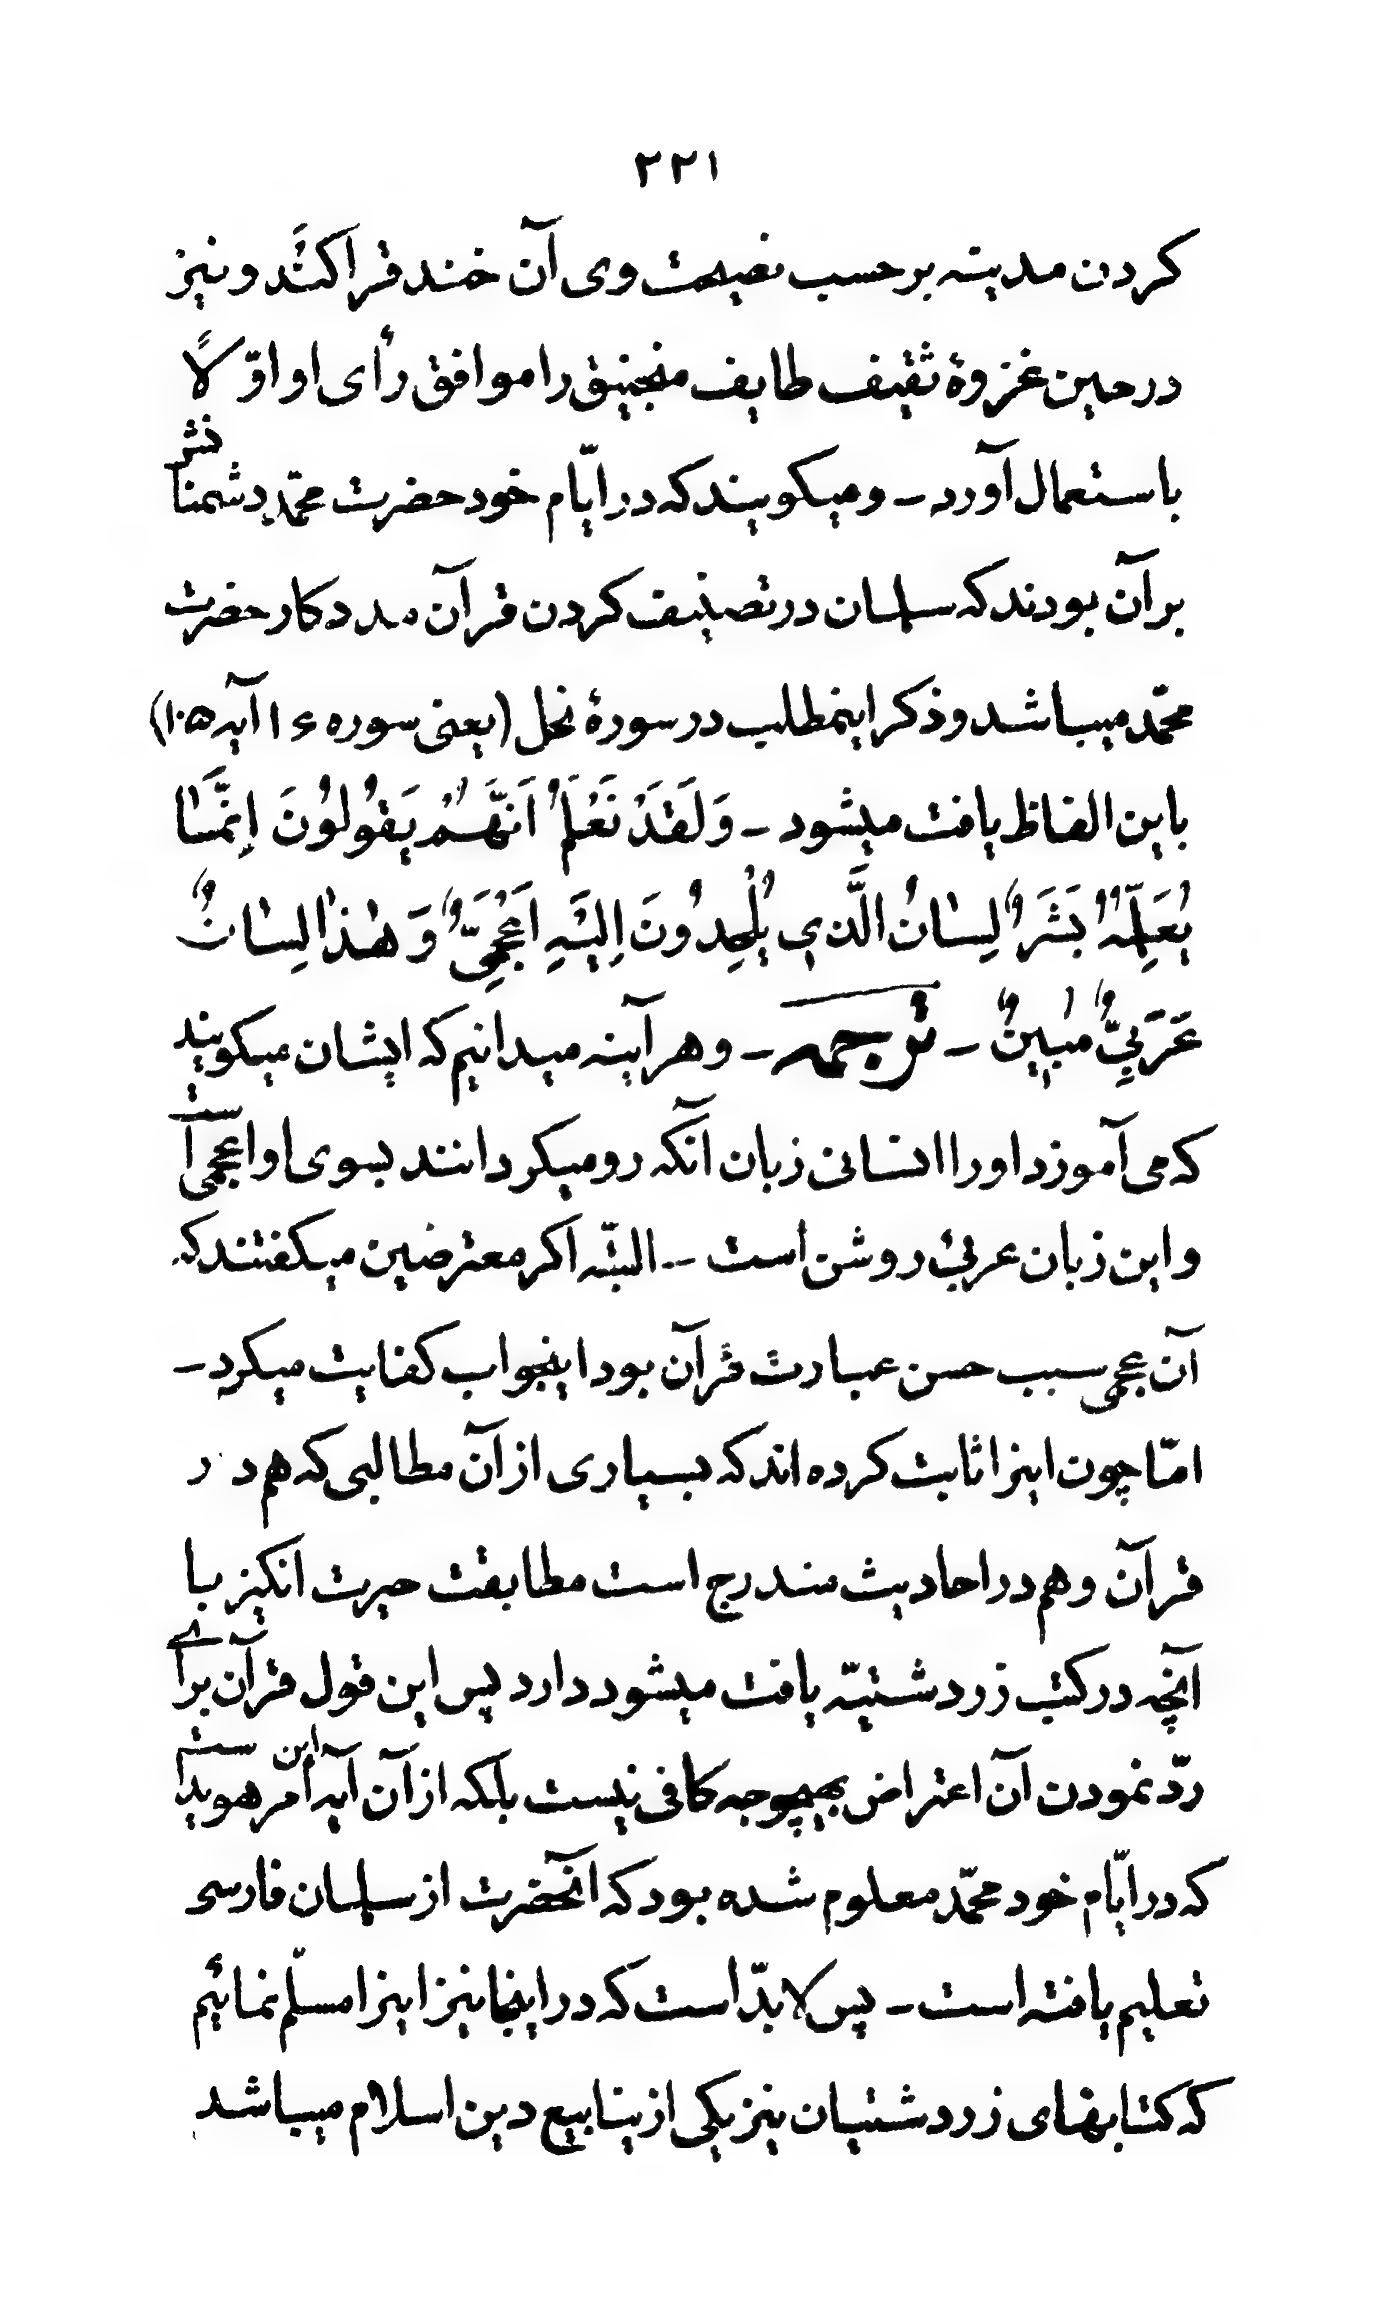 ٢٢١
کردن مدینه برحسب نصیحت وی آن خندق را کَنَند و نیز
در حین غزوهٔ ثقیف طایف منجنیق را موافق رأی او اوّلاً
باستعمال آورد - و میکویند که در ایّام خود حضرت محمّد دشمنانش
بر آن بودند که سلمان در تصنیف کردن قرآن مددکار حضرت
محمّد میباشد و ذکر اینمطلب در سورهٔ نحل (یعنی سوره ۱۶ آیه ۱۰۵)
باین الفاظ یافت میشود - وَلَقَدْ نَعْلَمُ اَنَّهُمْ يَقُولُونَ اِنَّمَا
يُعَلِّمُهُ بَشَرٌ لِسَانُ الَّذِي يُلْحِدُونَ اِلَيْهِ اَعْجَمِيٌّ وَهٰذَا لِسَانٌ
عَرَبِيٌّ مُبِينٌ - ترجمه - و هر آینه میدانیم که ایشان میکویند
که می آموزد او را انسانی زبان آنکه رو میکردانند بسوی او اعجمی است
و این زبان عربیٔ روشن است - البتّه اکر معترضین میکفتند که
آن عجمی سبب حسن عبارت قرآن بود اینجواب کفایت میکرد -
امّا چون اینرا ثابت کرده اند که بسیاری از آن مطالبی که هم در
قرآن و هم در احادیث مندرج است مطابقت حیرت انکیز با
آنچه در کتب زردشتیّه یافت میشود دارد پس این قول قرآن برای
ردّ نمودن آن اعتراض بهیچوجه کافی نیست بلکه از آن آیه این امر هویدا است
که در ایّام خود محمّد معلوم شده بود که آنحضرت از سلمان فارسی
تعلیم یافته است - پس لابدّ است که در اینجا نیز اینرا مسلّم نمائیم
که کتابهای زردشتیان نیز یکی از ینابیع دین اسلام میباشد